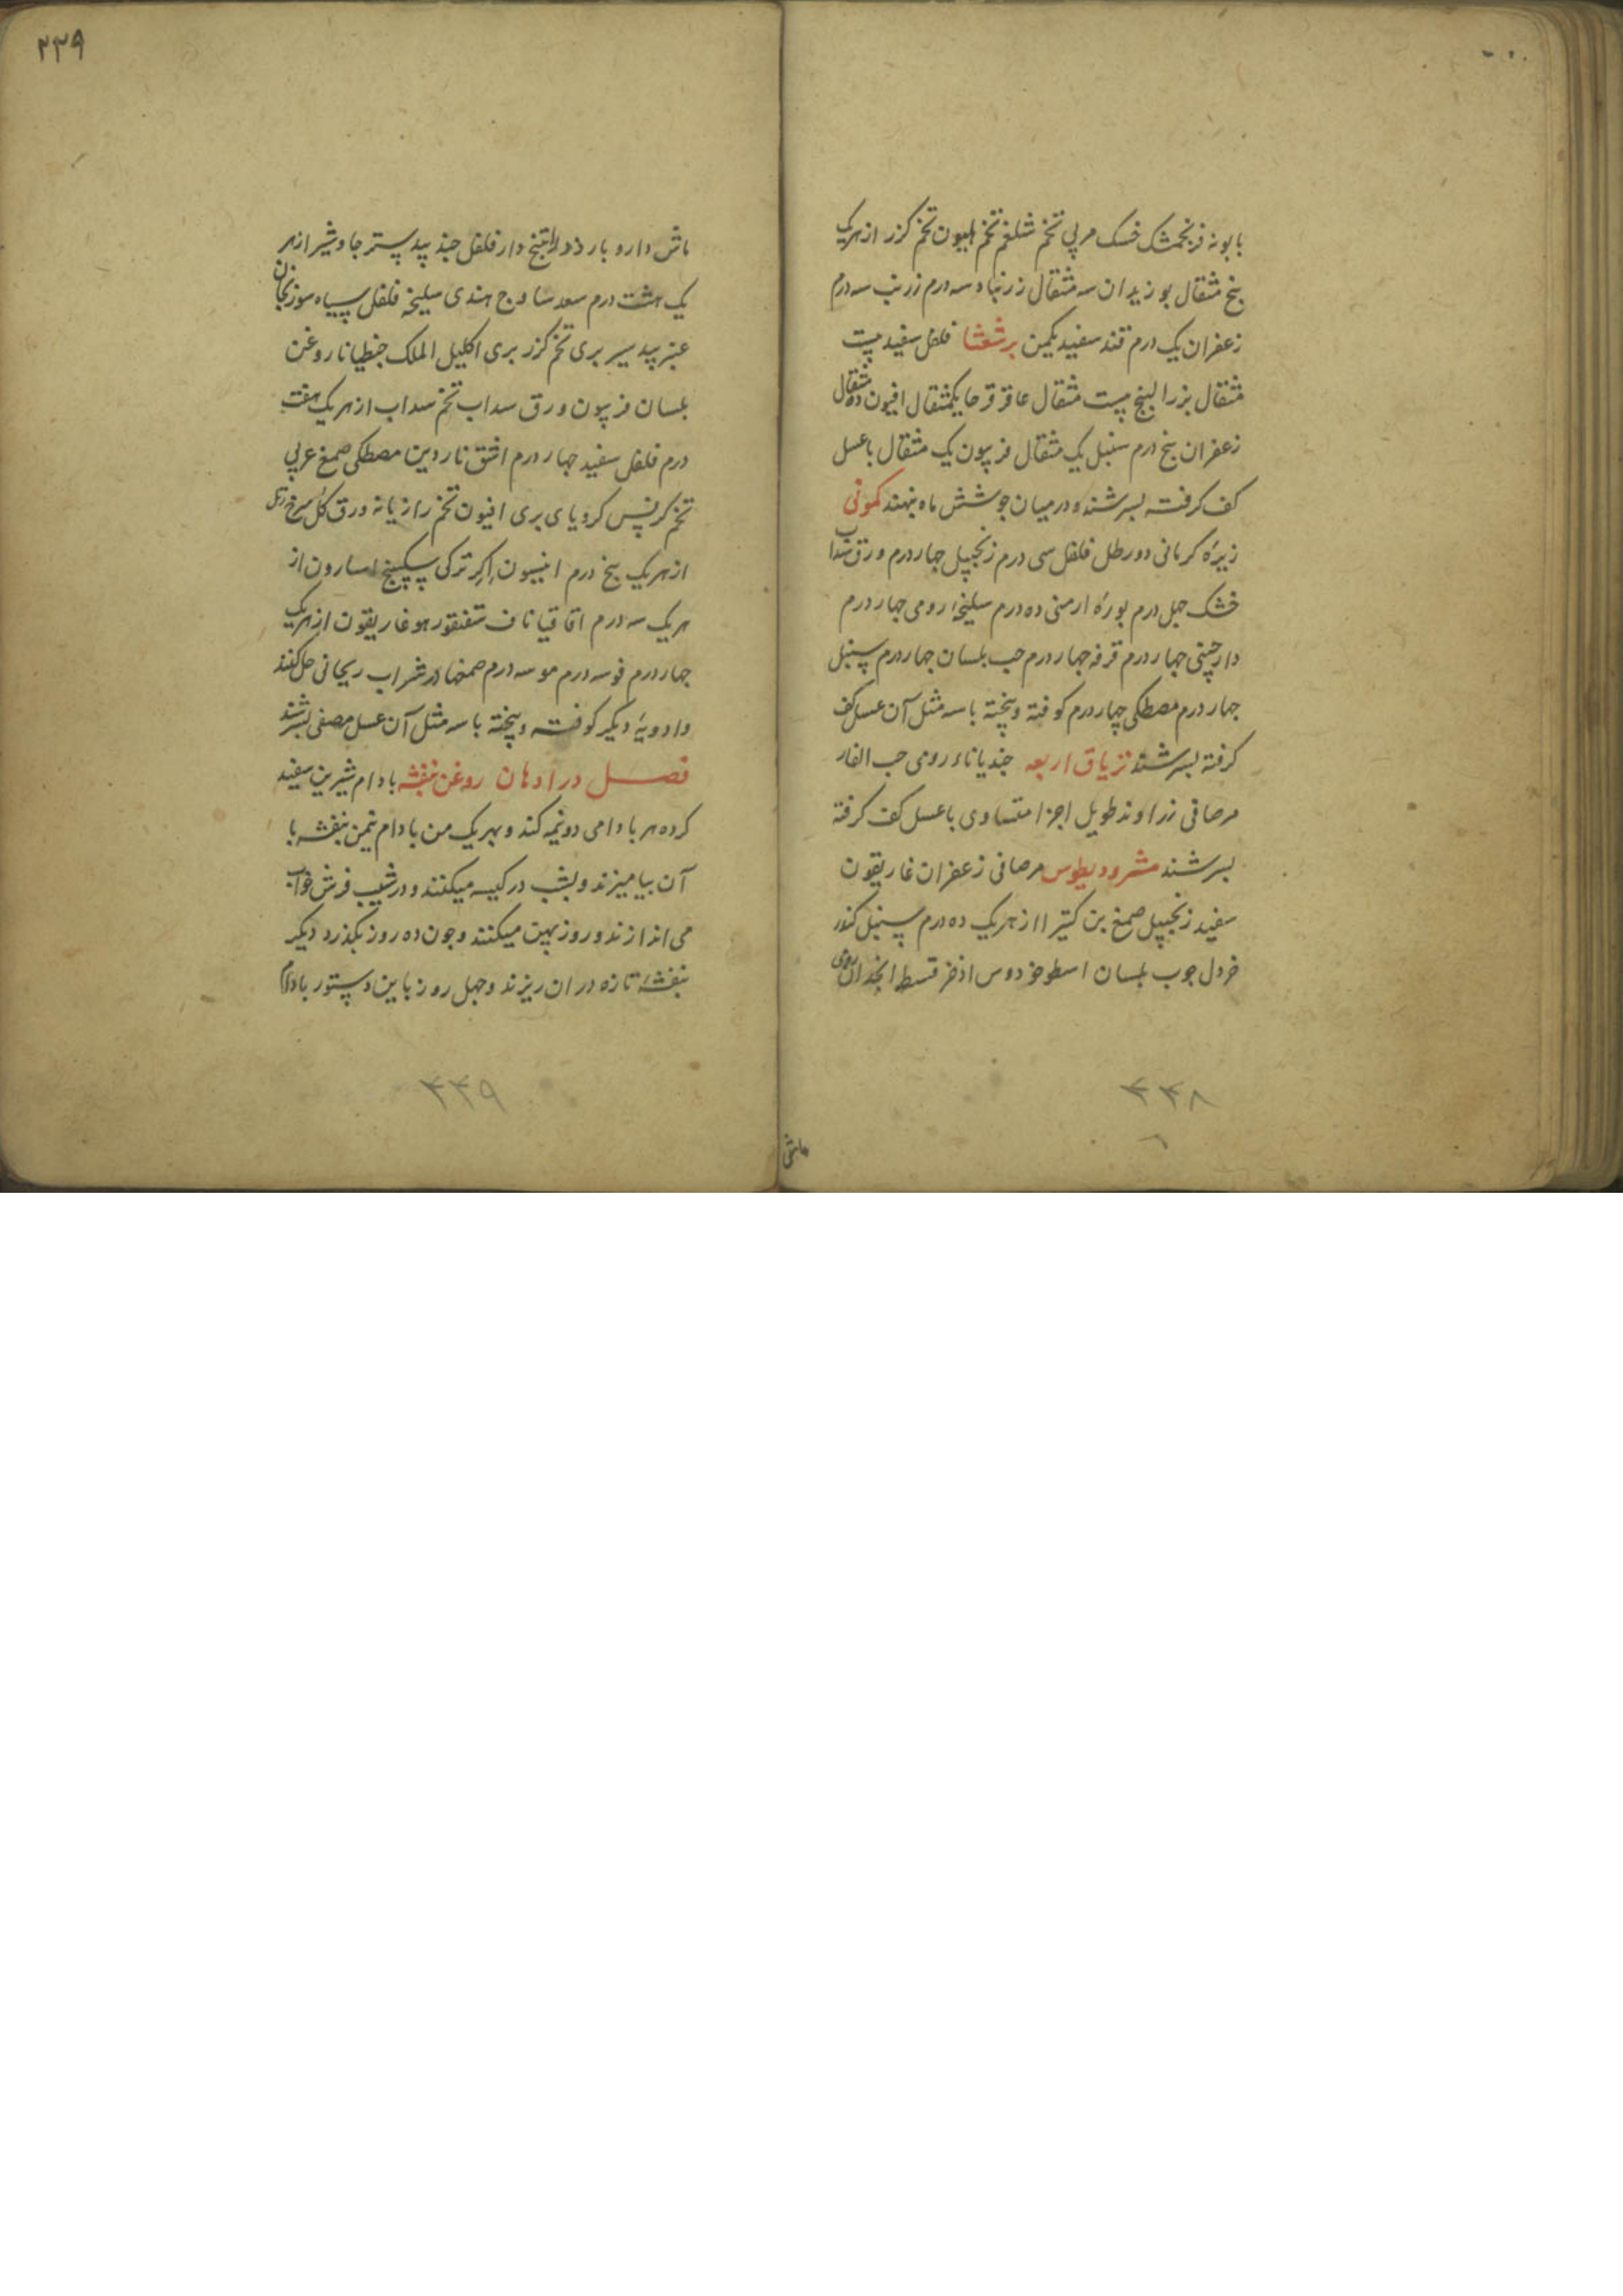 بابونه فرنجمشک خسک مربی تخم شلغم تخم هلیون تخم کزر از هریک
پنج مثقال بوزیدان سه مثقال زرنباد سه درم زرنب سه درم
زعفران یک درم قند سفید یکمن برشعثا فلفل سفید بیست
مثقال بزر البنج بیست مثقال عاقرقرحا یکمثقال افیون ده مثقال
زعفران پنج درم سنبل یک مثقال فربیون یک مثقال با عسل
کف کرفته بسرشند و در میان جو شش ماه بنهند کمونی
زیرهٔ کرمانی دو رطل فلفل سی درم زنجبیل چهار درم ورق سداب
خشک چهل درم بورهٔ ارمنی ده درم سلیخهٔ رومی چهار درم
دارچینی چهار درم قرفه چهار درم حب بلسان چهار درم سنبل
چهار درم مصطکی چهار درم کوفته و بیخته با سه مثل آن عسل کف
کرفته بسرشند تریاق اربعه جندیاناء رومی حب الغار
مر صافی زراوند طویل اجزا متساوی با عسل کف کرفته
بسرشند مثرودیطوس مر صافی زعفران غاریقون
سفید زنجبیل صمغ بن کتیرا از هریک ده درم سنبل کندر
خردل چوب بلسان اسطوخودوس اذخر قسط انجدان رومی
۳۳۸
۳۳۹
ماش دارو بارزد راتینج دارفلفل جند بیدستر جاوشیر از هر
یک هشت درم سعد ساوج هندی سلیخه فلفل سیاه سوزنجان
عنبر بید سیر بری تخم کزر بری اکلیل الملک جنطیانا روغن
بلسان فربیون ورق سداب تخم سداب از هریک هفت
درم فلفل سفید چهار درم اشق ناردین مصطکی صمغ عربی
تخم کرفس کرویای بری افیون تخم رازیانه ورق کل سرخ
از هریک پنج درم انیسون اکر ترکی سکبینج اسارون از
هریک سه درم اقاقیا ناف سقنقور هو غاریقون از هریک
چهار درم فو سه درم مو سه درم صمغها در شراب ریحانی حل کنند
و ادویهٔ دیکر کوفته و بیخته با سه مثل آن عسل مصفی بسرشند
فصل در ادهان روغن بنفشه بادام شیرین سفید
کرده هر بادامی دو نیمه کند و بهر یک من بادام نیمن بنفشه با
آن بیامیزند و بشب در کیسه میکنند و در شیب فرش خواب
می اندازند و روز پهن میکنند و چون ده روز بکذرد دیکر
بنفشهٔ تازه در ان ریزند و چهل روز باین دستور بادام
۳۳۹